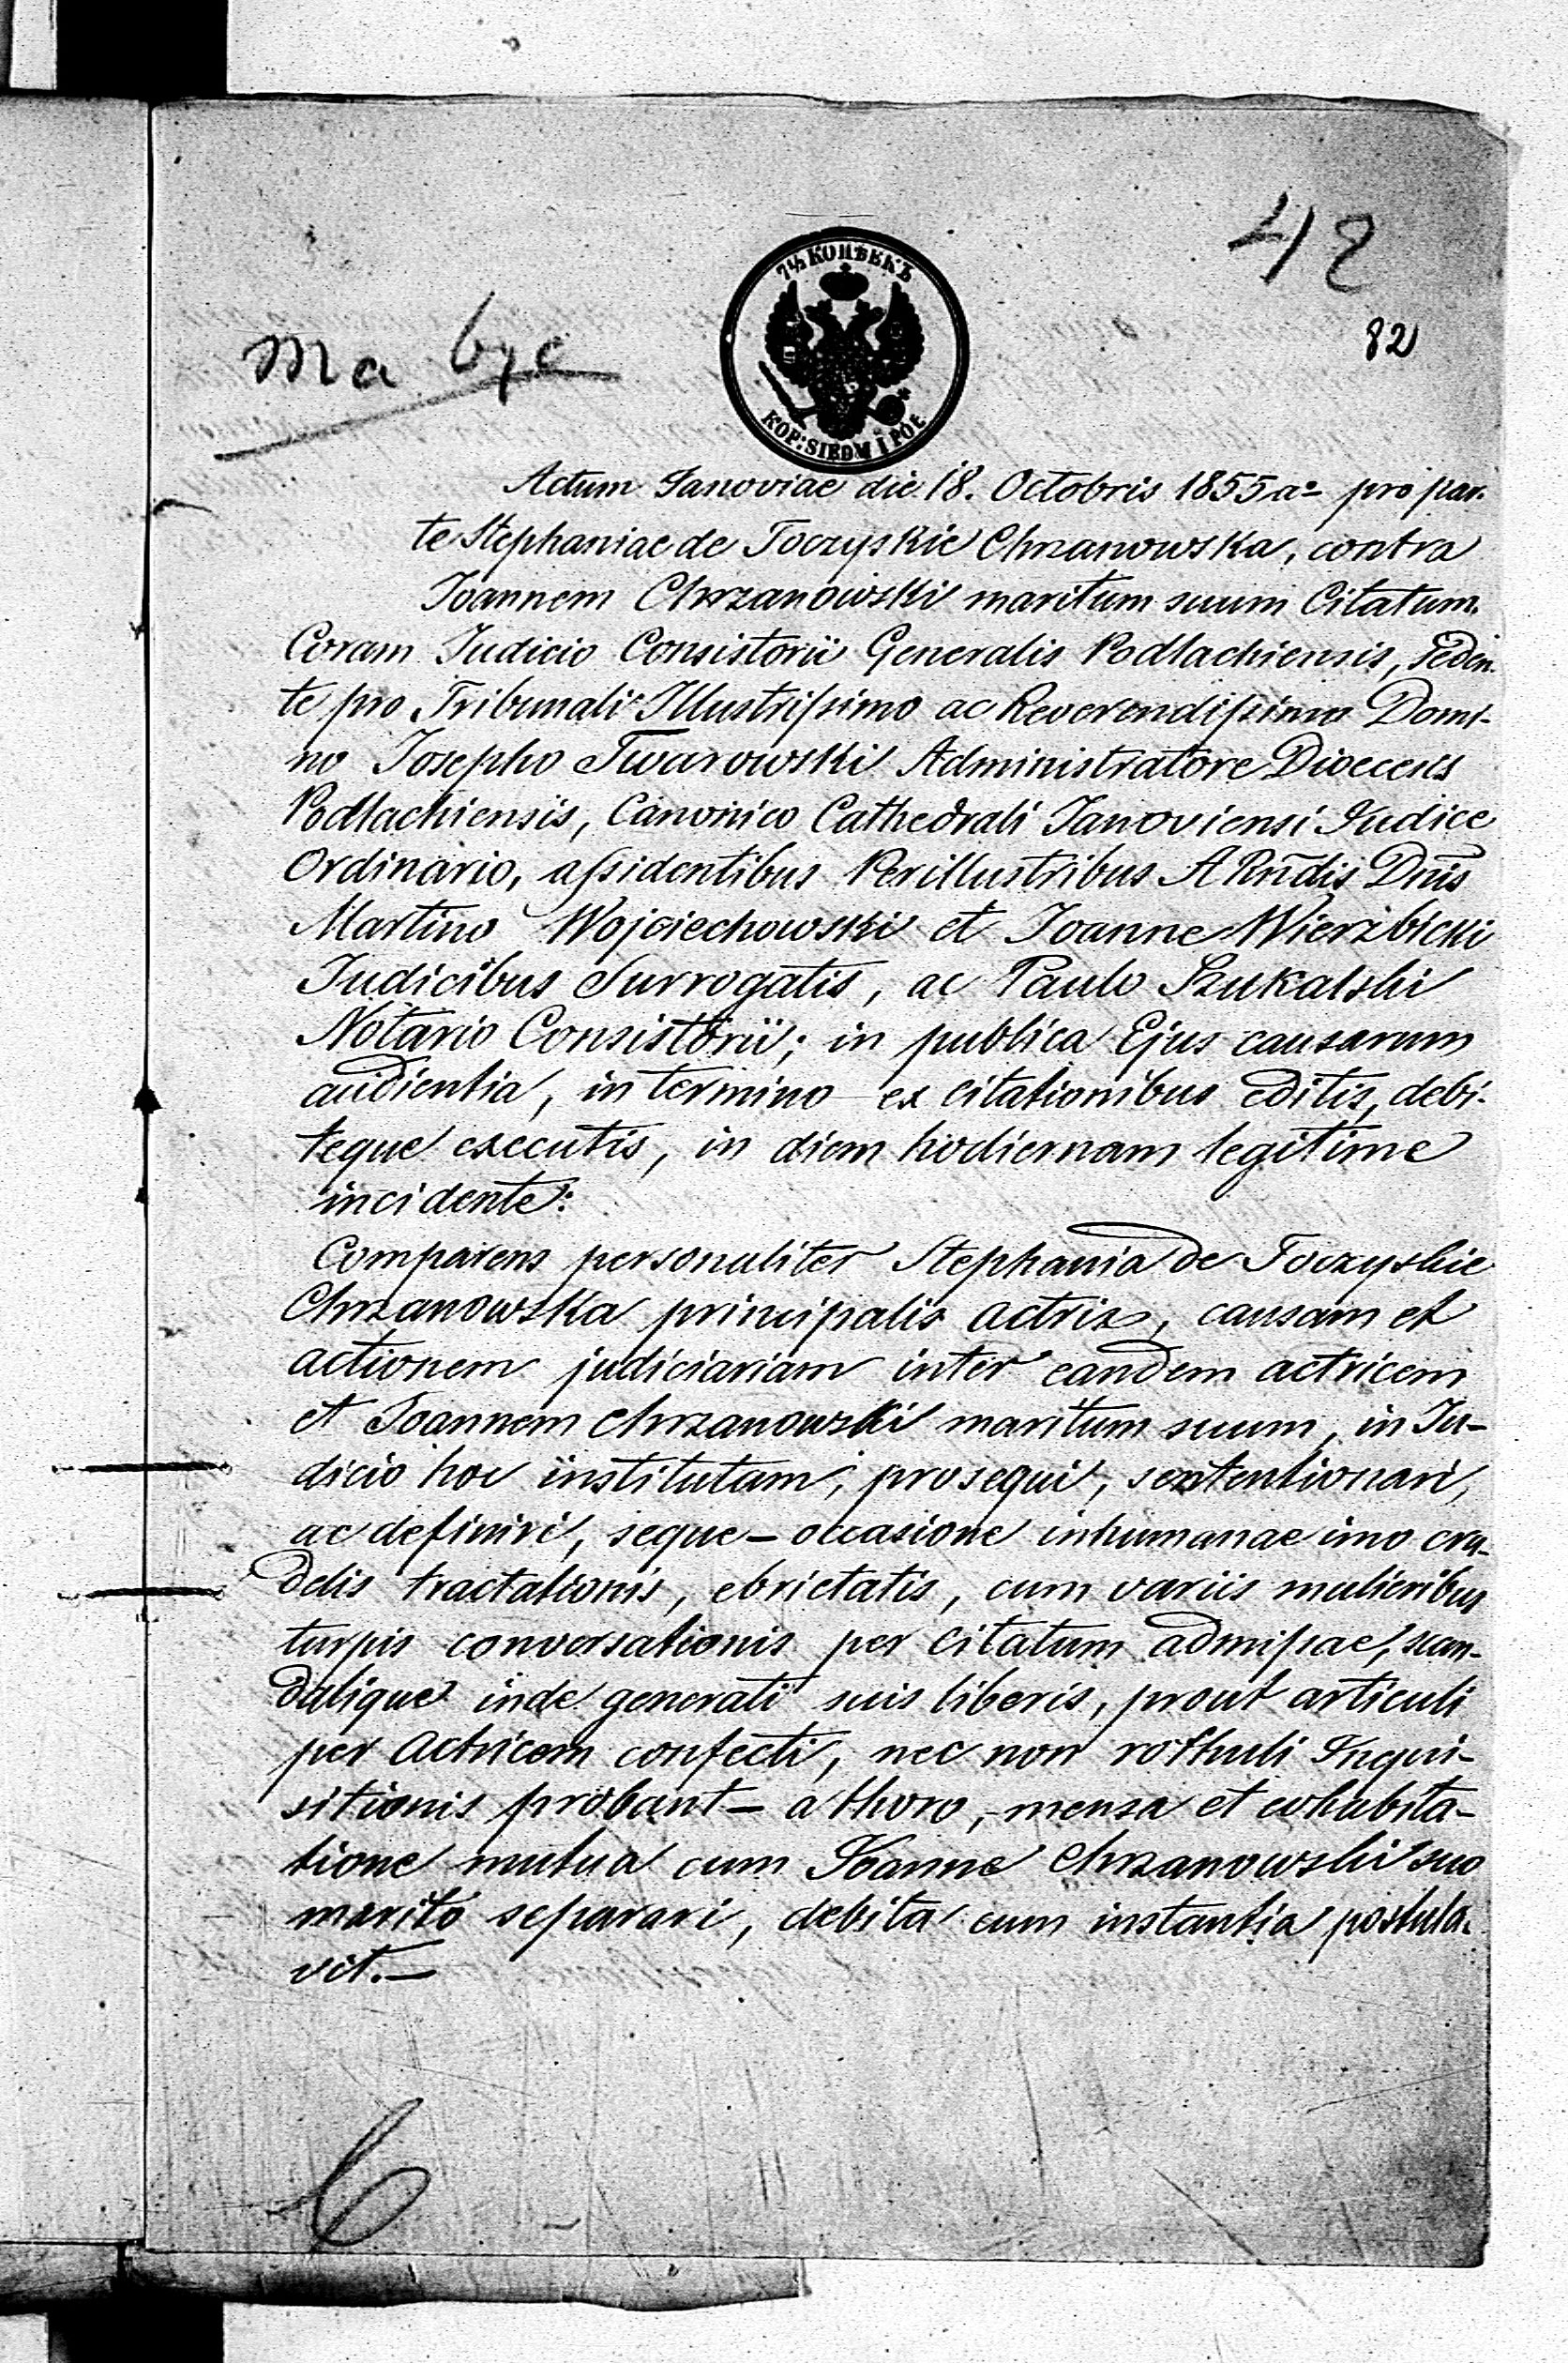 42
82
7½ КОПѢЕКЪ
KOP: SIEDM I PÓŁ
Ma być
Actum Janoviae die 18. Octobris 1855 aº pro par-
te Stephaniae de Toczyskie Chrzanowska, contra
Joannem Chrzanowski maritum suum Citatum.
Coram Judicio Consistorii Generalis Podlachiensis, seden-
te pro Tribunali Illustrissimo ac Reverendissimo Domi-
no Josepho Twarowski Administratore Dioecesis
Podlachiensis, Canonico Cathedrali Janoviensi Judice
Ordinario, assidentibus Perillustribus A Rndis Dnis
Martino Wojciechowski et Joanne Wierzbicki
Judicibus Surrogatis, ac Paulo Szukalski
Notario Consistorii; in publica Ejus causarum
audientia, in termino ex citationibus editis, debi-
teque executis, in diem hodiernam legitime
incidente:
Comparens personaliter Stephania de Toczyskie
Chrzanowska principalis actrix, causam et
actionem judiciariam inter eandem actricem
et Joannem Chrzanowski maritum suum, in Ju-
dicio hoc institutam, prosequi, sententionari,
ac definiri, seque – occasione inhumanae imo cru-
delis tractationis, ebrietatis, cum variis mulieribus
turpis conversationis per Citatum admissae, scan-
dalique inde generati suis liberis, prout articuli
per Actricem confecti, nec non rothuli Inqui-
sitionis probant – a thoro, mensa et cohabita-
tione mutua cum Joanne Chrzanowski suo
marito separari, debita cum instantia postula-
vit. –